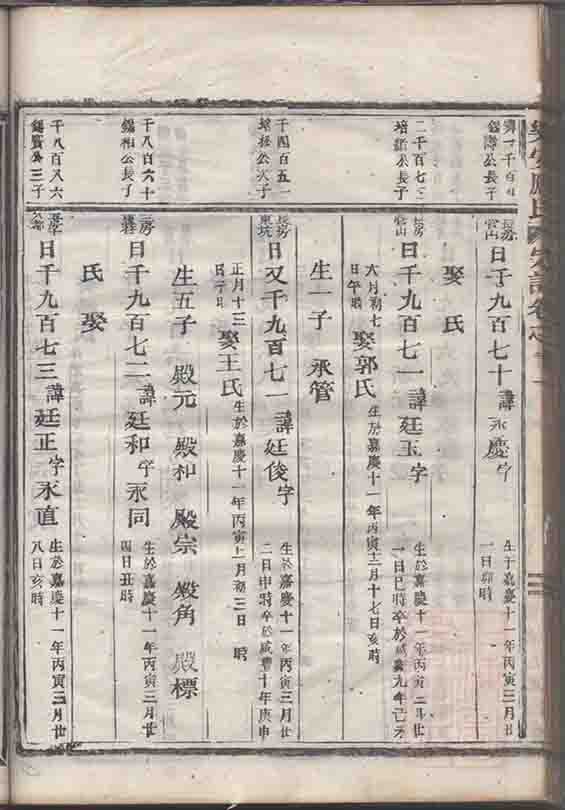 日千九百七十 諱永慶 字
生于嘉慶十一年丙寅三月廿
一日卯時
娶 氏
二千百七三
培 公長子
長房
官山
日千九百七一 諱廷玉 字
生於嘉慶十一年丙寅 三月廿
一日巳時卒於咸豐九年己未
六月初七
日午時
娶郭氏
生於嘉慶十一年丙寅十二月十七日亥時
生一子 永管
千四百五一
培 公次子
長房
東坑
日又千九百七一 諱廷俊 字
生於嘉慶十一年丙寅三月廿
二日申時卒於咸豐十年庚申
正月十三
日子時
娶王氏
生於嘉慶十一年丙寅 二月初三日 時
生五子 殿元 殿和 殿宗 殿角 殿標
千八百六十
錫和公長子
三房
日千九百七二 諱廷和 字永同
生於嘉慶十一年丙寅三月廿
四日丑時
娶 氏
千八百又六
錫賚公三子
日千九百七三 諱廷正 字永直
生於嘉慶十一年丙寅三月廿
八日亥時